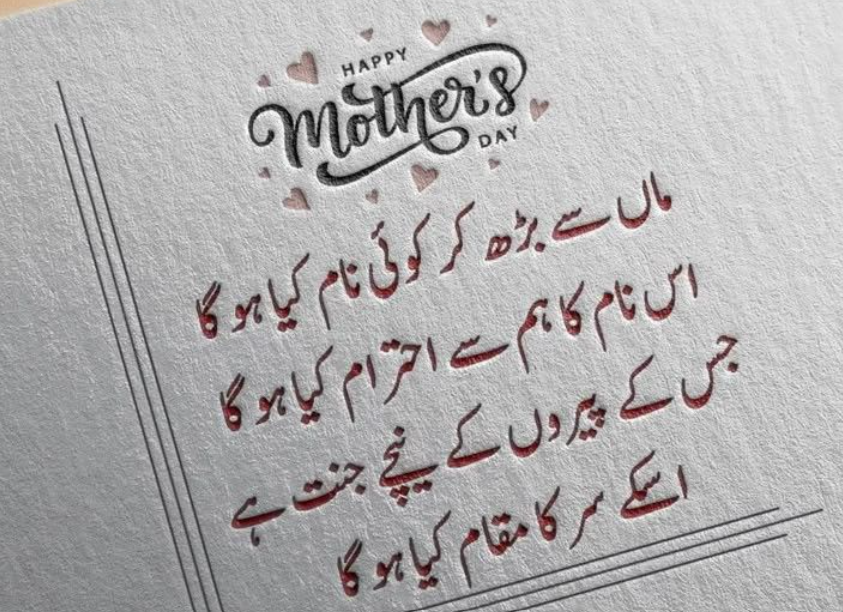 HAPPY
Mother's
DAY
ماں سے بڑھ کر کوئی نام کیا ہو گا
اس نام کا ہم سے احترام کیا ہو گا
جس کے پیروں کے نیچے جنت ہے
اسکے سر کا مقام کیا ہو گا